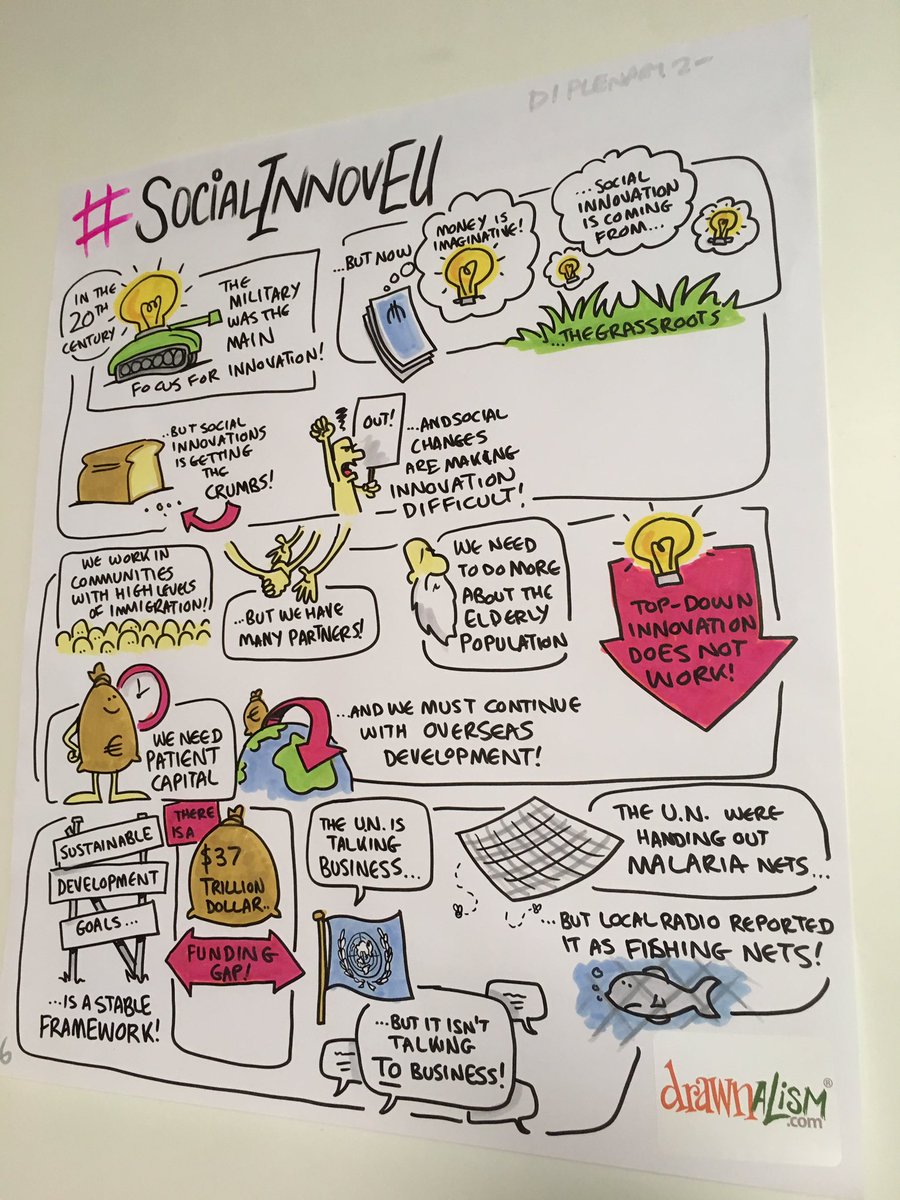 D1 PLENARY 2-
#SOCIALINNOVEU
IN THE
20TH
CENTURY
THE
MILITARY
WAS THE
MAIN
FOCUS FOR INNOVATION!
...BUT NOW
MONEY IS
IMAGINATIVE!
...SOCIAL
INNOVATION
IS COMING
FROM...
...THE GRASSROOTS
...BUT SOCIAL
INNOVATIONS
IS GETTING
THE
CRUMBS!
OUT!
...AND SOCIAL
CHANGES
ARE MAKING
INNOVATION
DIFFICULT!
WE WORK IN
COMMUNITIES
WITH HIGH LEVELS
OF IMMIGRATION!
...BUT WE HAVE
MANY PARTNERS!
WE NEED
TO DO MORE
ABOUT THE
ELDERLY
POPULATION
TOP-DOWN
INNOVATION
DOES NOT
WORK!
€
WE NEED
PATIENT
CAPITAL
€
...AND WE MUST CONTINUE
WITH OVERSEAS
DEVELOPMENT!
SUSTAINABLE
DEVELOPMENT
GOALS...
...IS A STABLE
FRAMEWORK!
THERE
IS A
$37
TRILLION
DOLLAR..
FUNDING
GAP!
THE U.N. IS
TALKING
BUSINESS...
...BUT IT ISN'T
TALKING
TO BUSINESS!
THE U.N. WERE
HANDING OUT
MALARIA NETS...
...BUT LOCAL RADIO REPORTED
IT AS FISHING NETS!
6
drawnALISM®
.com